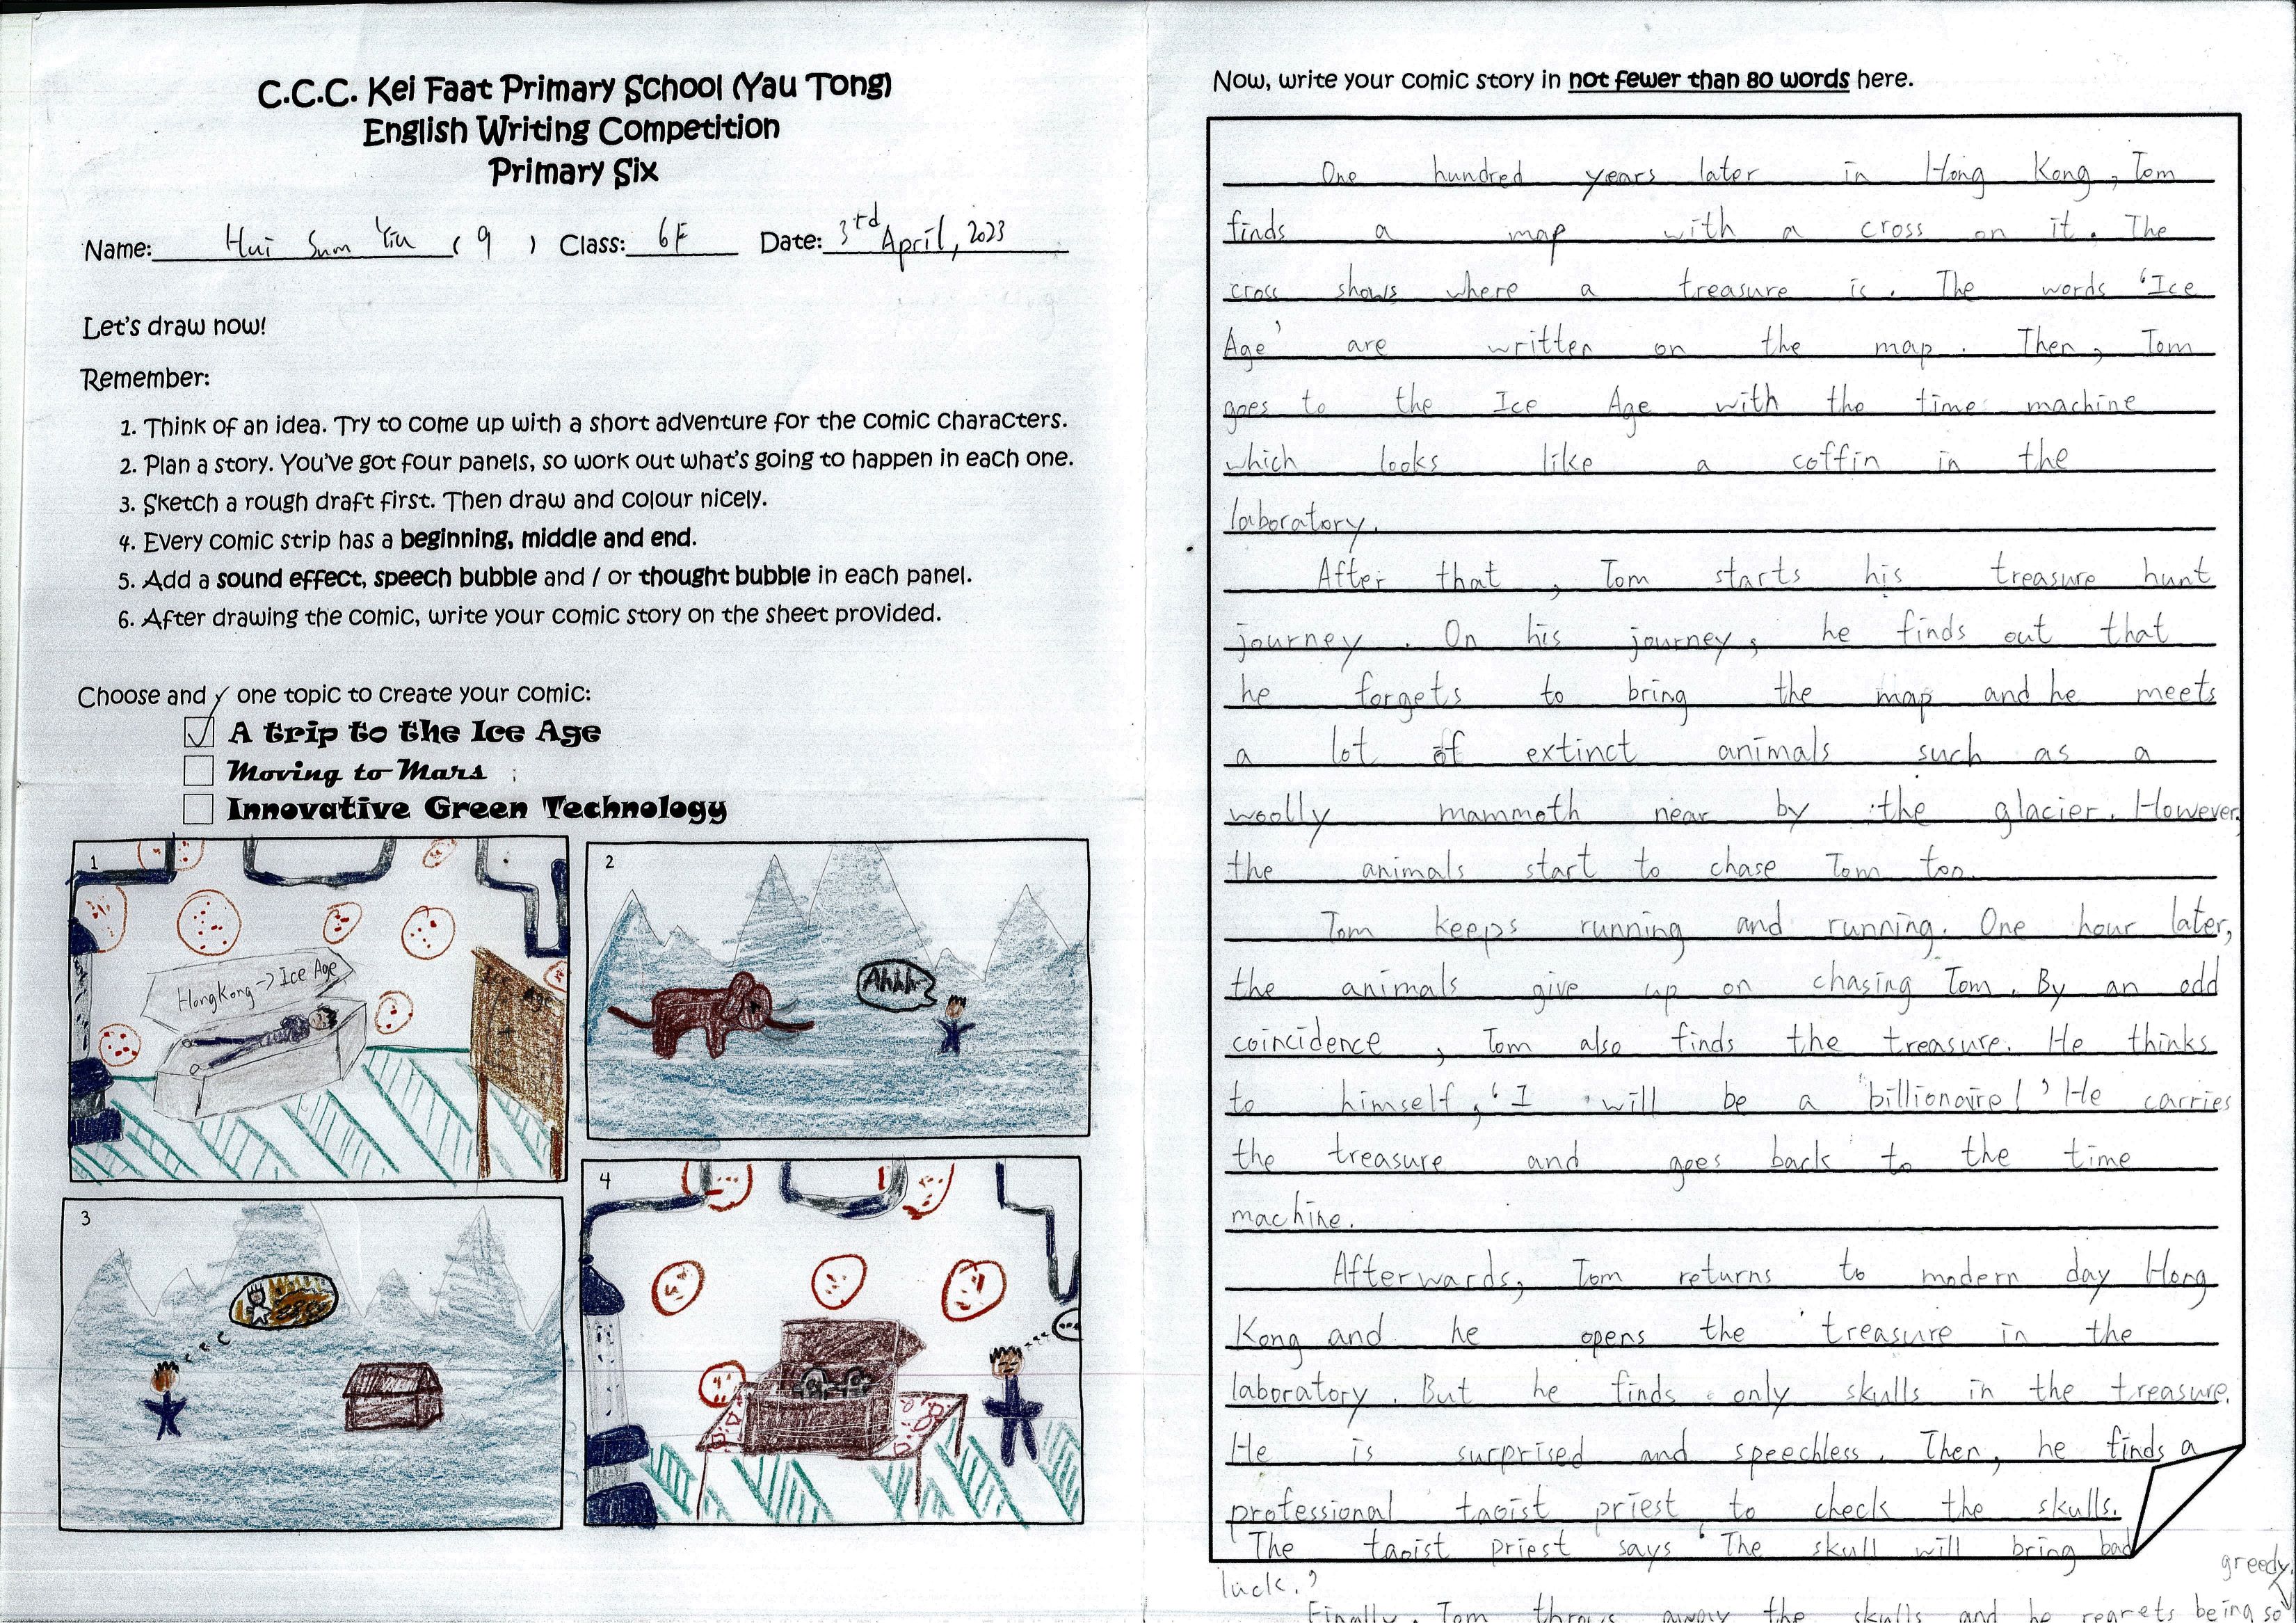 C.C.C. Kei Faat Primary School (Yau Tong)
English Writing Competition
Primary Six
Name: Hui Sum Yiu ( 9 ) Class: 6F Date: 3rd April, 2023
Let's draw now!
Remember:
1. Think of an idea. Try to come up with a short adventure for the comic characters.
2. Plan a story. You've got four panels, so work out what's going to happen in each one.
3. Sketch a rough draft first. Then draw and colour nicely.
4. Every comic strip has a beginning, middle and end.
5. Add a sound effect, speech bubble and / or thought bubble in each panel.
6. After drawing the comic, write your comic story on the sheet provided.
Choose and ✓ one topic to create your comic:
✓ A trip to the Ice Age
Moving to Mars
Innovative Green Technology
1
HongKong → Ice Age
Ice Age
2
Ahhh
3
4
...
Now, write your comic story in not fewer than 80 words here.
One hundred years later in Hong Kong, Tom
finds a map with a cross on it. The
cross shows where a treasure is. The words 'Ice
Age' are written on the map. Then, Tom
goes to the Ice Age with the time machine
which looks like a coffin in the
laboratory.
After that, Tom starts his treasure hunt
journey. On his journey, he finds out that
he forgets to bring the map and he meets
a lot of extinct animals such as a
woolly mammoth near by the glacier. However,
the animals start to chase Tom too.
Tom keeps running and running. One hour later,
the animals give up on chasing Tom. By an odd
coincidence, Tom also finds the treasure. He thinks
to himself, 'I will be a billionaire!' He carries
the treasure and goes back to the time
machine.
Afterwards, Tom returns to modern day Hong
Kong and he opens the treasure in the
laboratory. But he finds only skulls in the treasure.
He is surprised and speechless. Then, he finds a
professional taoist priest to check the skulls.
The taoist priest says 'The skull will bring bad
luck.'
Finally, Tom throws away the skulls and he regrets being so
greedy.